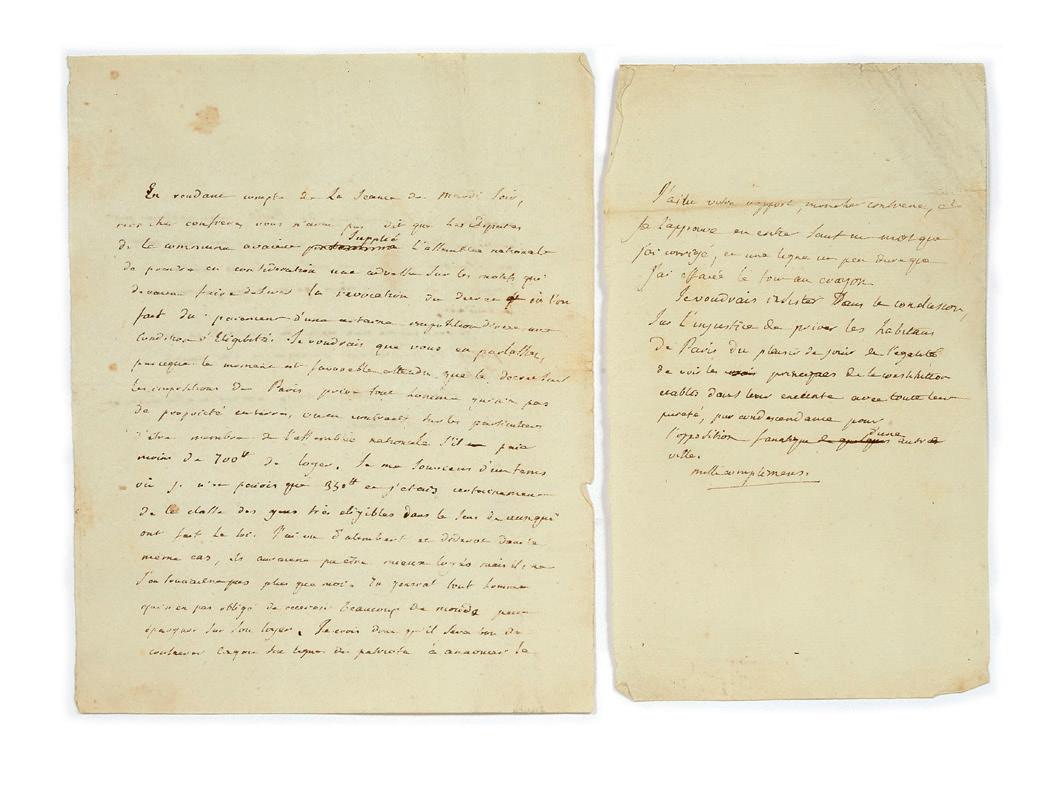 En rendant compte de la seance de mardi soir,
mon cher confrere, vous n'avez pas dit que les deputés
de la commune avaient supplié l'assemblee nationale
de prendre en consideration une adresse sur les motifs qui
devaient faire desirer la revocation du decret où l'on
fait du paiement d'une certaine imposition directe une
condition d'Eligibilité. Je voudrais que vous en parlassiez,
parceque le moment est favorable attendu que le decret sur
les impositions de Paris prive tout homme qui n'a pas
de propriété en terres, ou en contracts sur les particuliers
d'etre membre de l'assemblée nationale s'il paie
moins de 700# de loyer. Je me souviens d'un tems
où je n'en paiois que 350# et j'etais certainement
de la classe des gens très eligibles dans le sens de ceux qui
ont fait la loi. J'ai vu d'alembert et diderot dans le
même cas, ils auraient pu être mieux logés mais ils ne
s'en souciaient pas plus que moi. En general tout homme
qui n'est pas obligé de recevoir beaucoup de monde peut
epargner sur son loyer. Je crois donc qu'il sera bon de
consacrer cinq ou six lignes du patriote à annoncer la
J'ai lu votre rapport, mon cher confrere, et
je l'approuve en entier sauf un mot que
j'ai corrigé, et une ligne un peu dure que
j'ai effacé le tout au crayon
Je voudrais insister dans la conclusion,
sur l'injustice de priver les habitans
de Paris du plaisir de jouir de l'egalité
de voir les principes de la constitution
etablis dans leur enceinte avec toute leur
pureté, par condescendance pour
l'opposition fanatique d'une autre
ville.
mille complimens.